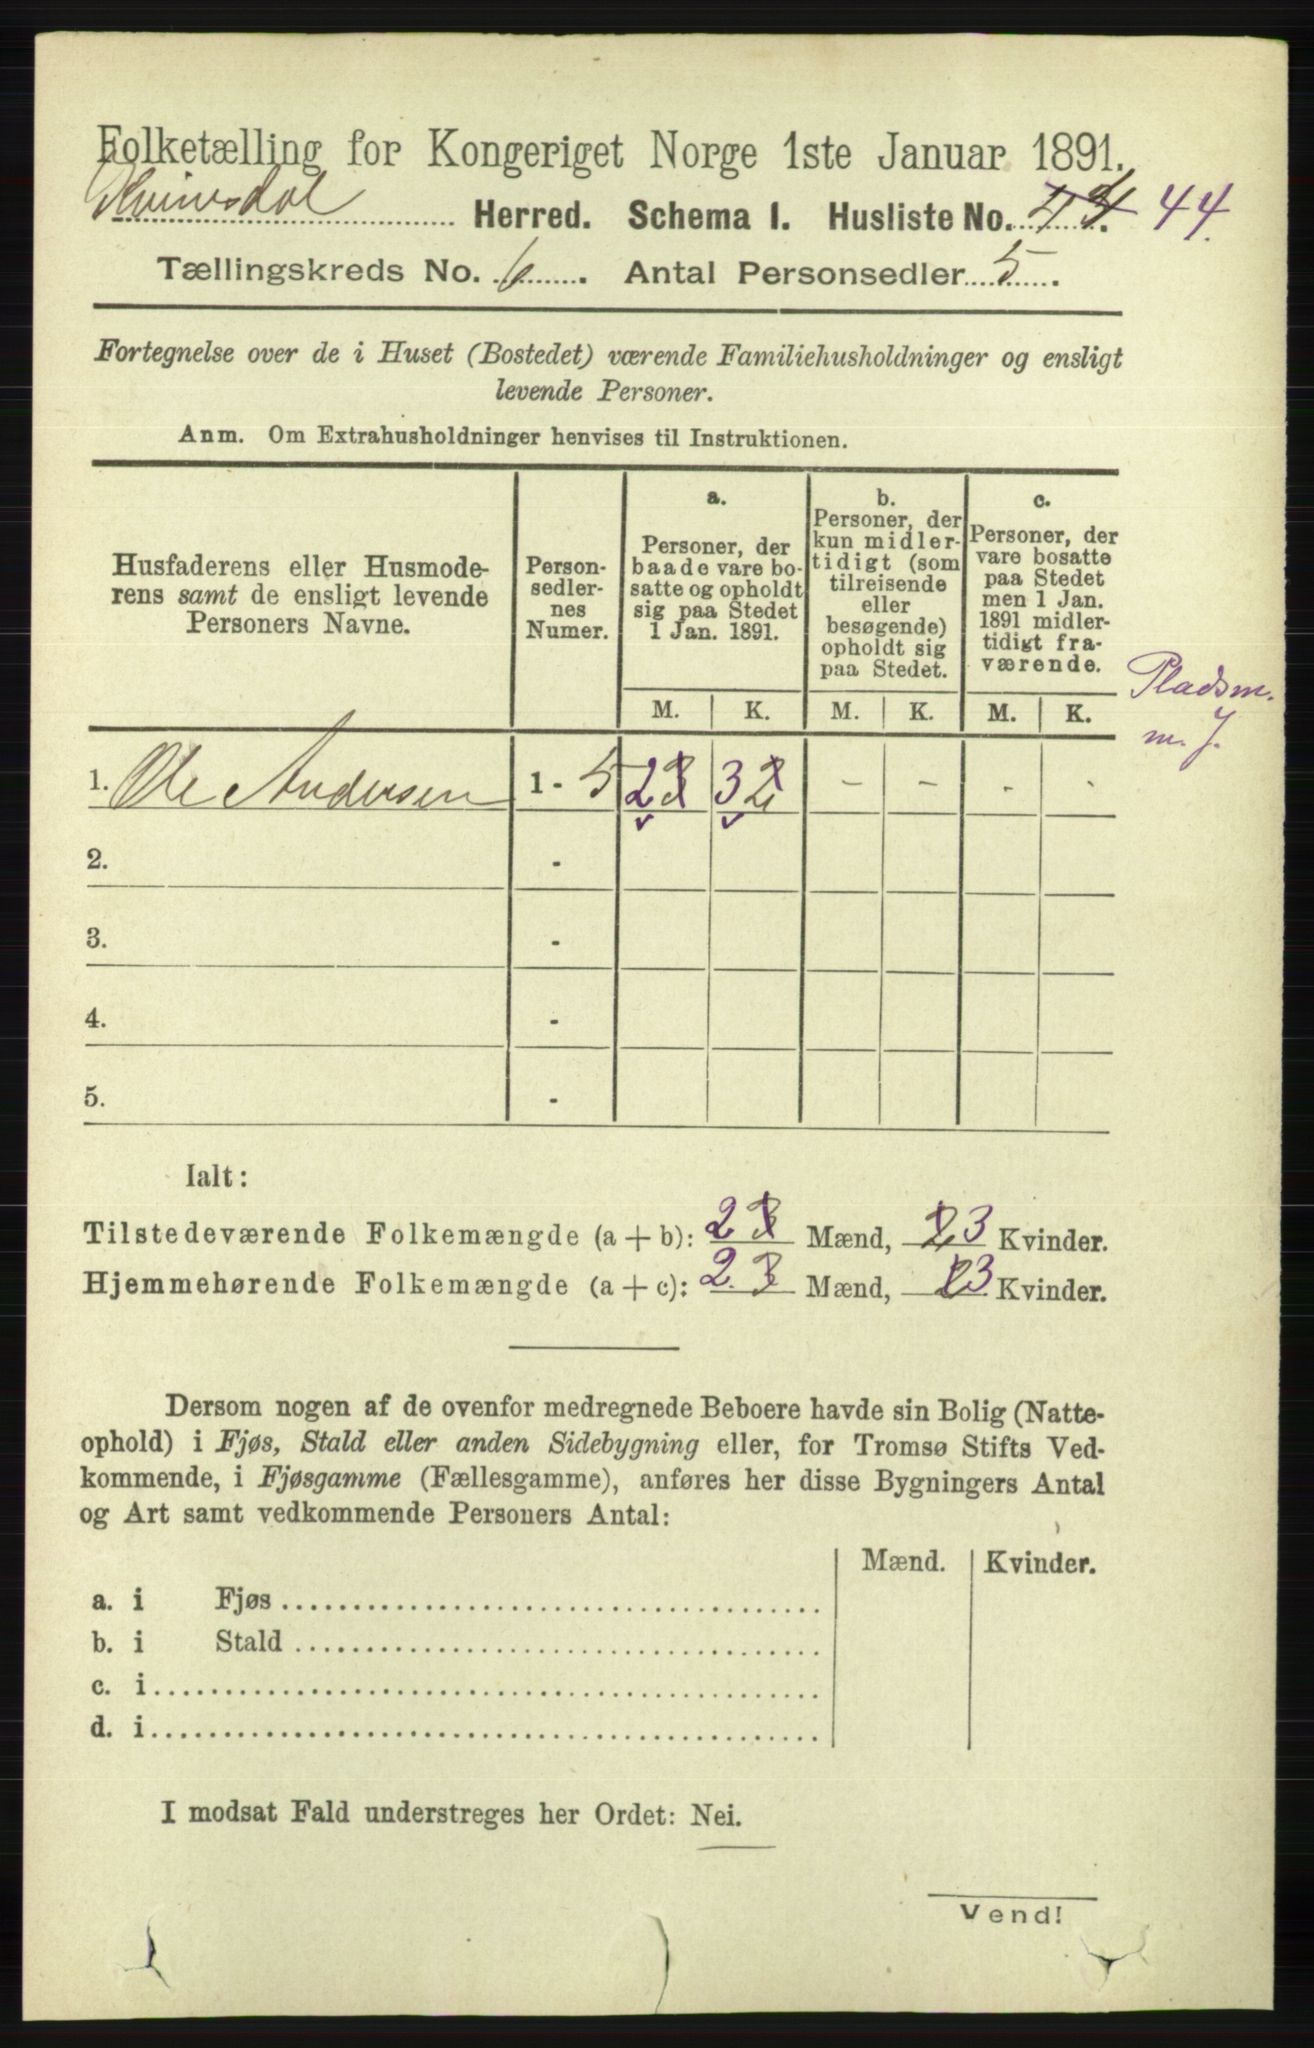 Folketælling for Kongeriget Norge 1ste Januar 1891.
Herred. Schema 1. Husliste No. 44.
Tællingskreds No. 6. Antal Personsedler 5.
Fortegnelse over de i Huset (Bostedet) værende Familiehusholdninger og ensligt
levende Personer.
Anm. Om Extrahusholdninger henvises til Instruktionen.
Husfaderens eller Husmode-
rens samt de ensligt levende
Personers Navne.
Person-
sedler-
nes
Numer.
a.
Personer, der
baade vare bo-
satte og opholdt
sig paa Stedet
1 Jan. 1891.
b.
Personer, der
kun midler-
tidigt (som
tilreisende
eller
besøgende)
opholdt sig
paa Stedet.
c.
Personer, der
vare bosatte
paa Stedet
men 1 Jan.
1891 midler-
tidigt fra-
værende.
M. K. M. K. M. K.
Pladsm.
m. J.
1. Ole Andersen 1 - 5 2 3 3 2 - - - -
2. -
3. -
4. -
5. -
Ialt:
Tilstedeværende Folkemængde (a + b): 2 3 Mænd, 2 3 Kvinder.
Hjemmehørende Folkemængde (a + c): 2 3 Mænd, 2 3 Kvinder.
Dersom nogen af de ovenfor medregnede Beboere havde sin Bolig (Natte-
ophold) i Fjøs, Stald eller anden Sidebygning eller, for Tromsø Stifts Ved-
kommende, i Fjøsgamme (Fællesgamme), anføres her disse Bygningers Antal
og Art samt vedkommende Personers Antal:
Mænd. Kvinder.
a. i Fjøs
b. i Stald
c. i
d. i
I modsat Fald understreges her Ordet: Nei.
Vend!